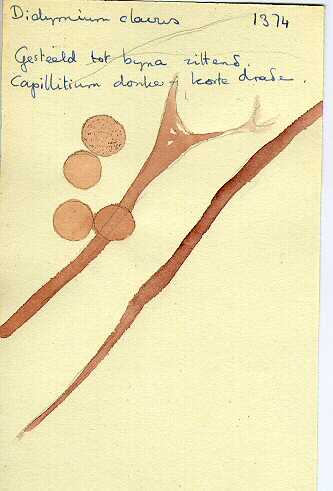 Didymium clavus 1374
Gesteeld tot byna zittend.
Capillitium donker, korte draden.